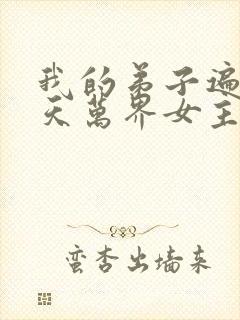 我的弟子遍
天萬界女主
蛮杏出墙来